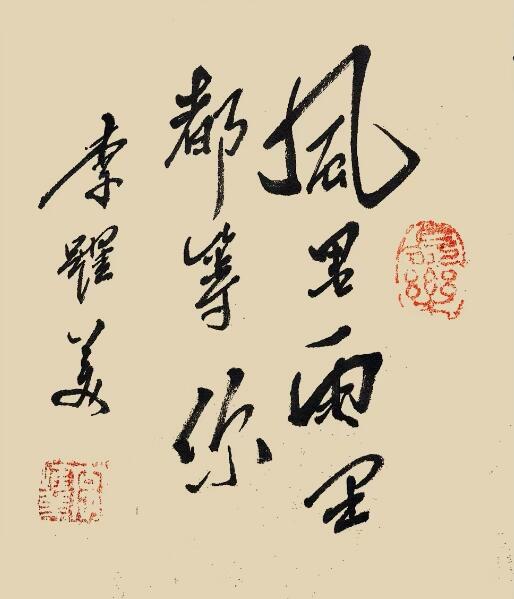 風里雨里
都等你
李躍美